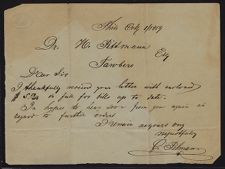 Phila Oct 1/1879
Dr. H. Pittmann Esq
Newbern
Dear Sir
I thankfully received your letter with enclosed
$5.20 in full for bills up to date.
In hopes to hear soon from you again in
regard to further orders
I Remain
respectfully